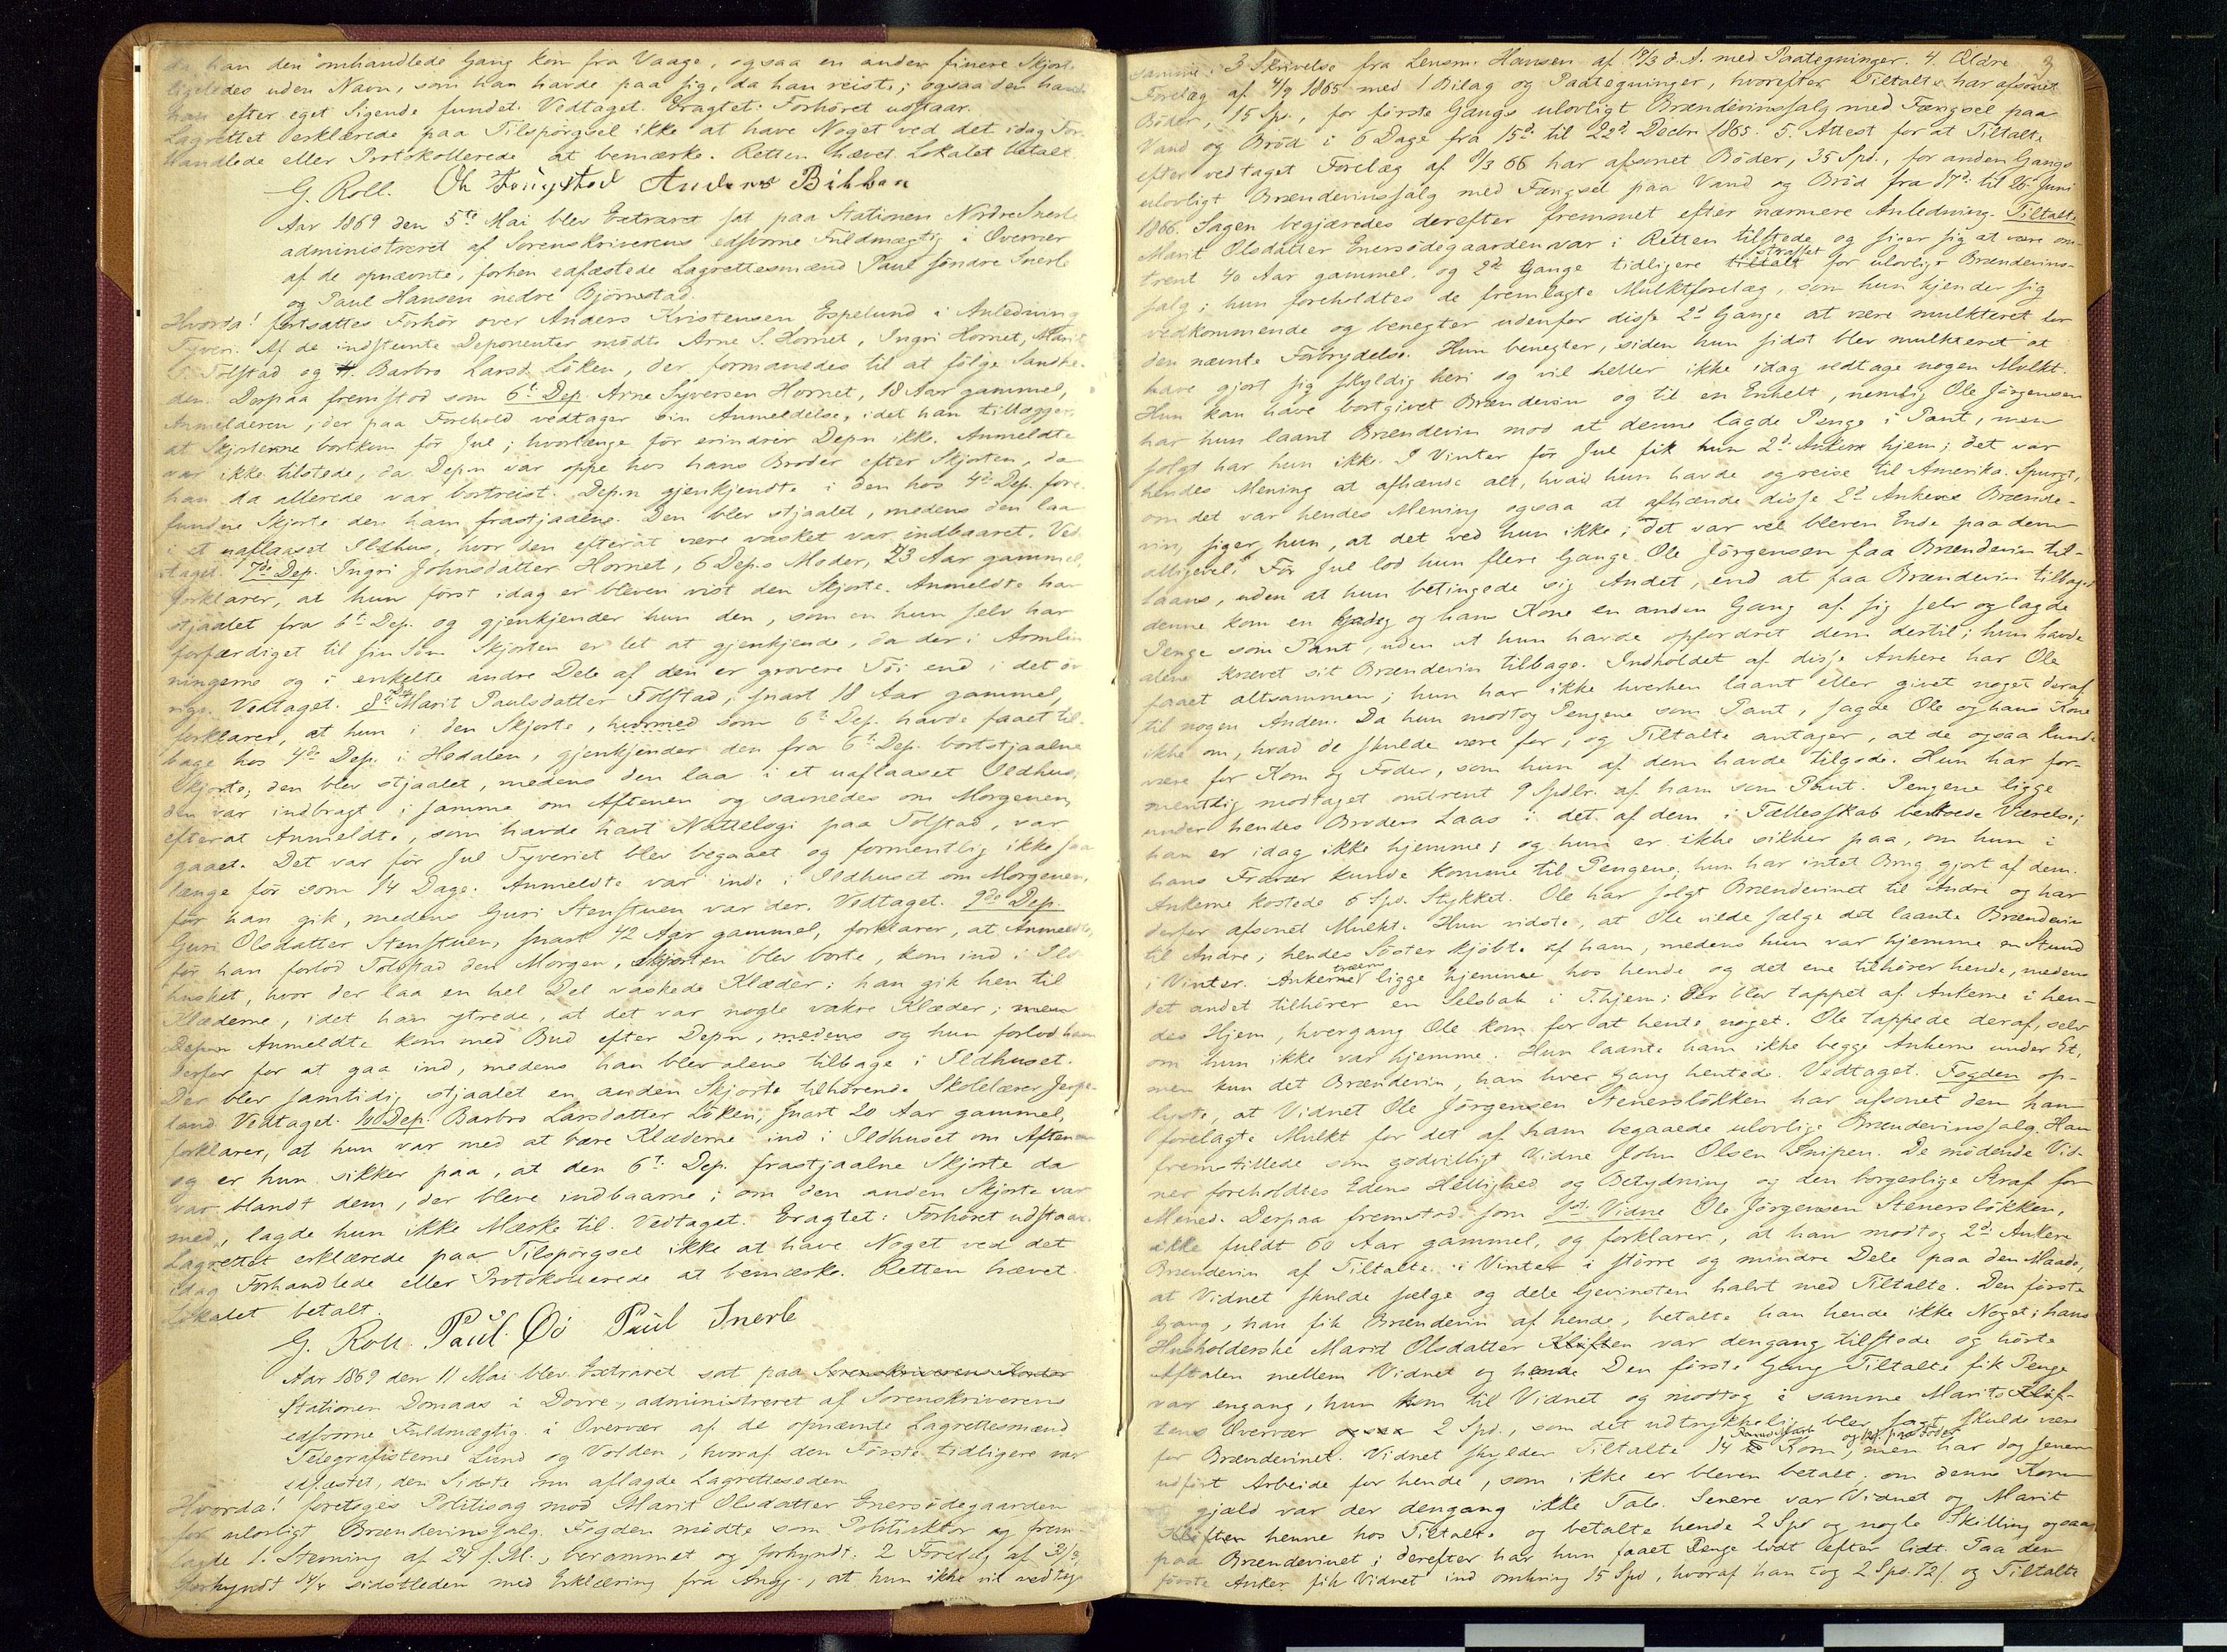 da han den omhandlede Gang kom fra Vaage, ogsaa en anden finere Skjorte
ligeledes uden Navn, som han havde paa sig, da han reiste; ogsaa den havde
han efter eget Sigende fundet. Vedtaget. Eragtet: Forhøret udstaar.
Lagrettet erklærede paa Tilspørgsel ikke at have Noget ved det idag For-
handlede eller Protokollerede at bemærke. Retten hævet. Lokalet betalt.
G. Roll. Anders Bihben
Aar 1869 den 5te Mai blev Extraret sat paa Stationen Nordre Snerle
administreret af Sorenskriverens edsvorne Fuldmægtig i Overvær
af de opnævnte, forhen edfæstede Lagrettesmænd Paul søndre Snerle
og Paul Hansen nedre Bjørnstad.
Hvorda! fortsattes Forhør over Anders Kristensen Espelund i Anledning
Tyveri. Af de indstevnte Deponenter mødte Arne S. Hornet, Ingri Hornet, Marit
P. Tolstad og Barbro Larsd. Løken, der formanedes til at følge Sandhe-
den. Derpaa fremstod som 6te Dep. Arne Syversen Hornet, 18 Aar gammel,
Anmelderen, der paa Forehold vedtager sin Anmeldelse, idet han tillægger,
at Skjorterne bortkom før Jul; hvorlænge før erindrer Dep.n ikke. Anmeldte
var ikke tilstede, da Dep.n var oppe hos hans Broder efter Skjorten, da
han da allerede var bortreist. Dep.n gjenkjendte i den hos 4de Dep. fore-
fundne Skjorte den ham frastjaalne. Den blev stjaalet, medens den laa
i et uaflaaset Ildhus, hvor den efterat være vasket var indbaaret. Ved-
taget. 7de Dep. Ingri Johnsdatter Hornet, 6 Dep.s Moder, 43 Aar gammel,
forklarer, at hun først idag er bleven vist den Skjorte, Anmeldte har
stjaalet fra 6te Dep. og gjenkjender hun den, som en hun selv har
forfærdiget til sin Søn. Skjorten er let at gjenkjende, da der i Armlin-
ningerne og i enkelte andre Dele af den er grovere Tøi end i det øv-
rige. Vedtaget. 8de Dep. Marit Paulsdatter Tolstad, snart 18 Aar gammel,
forklarer, at hun i den Skjorte, som 6te Dep. havde faaet til-
bage hos 4de Dep. i Hedalen, gjenkjender den fra 6te Dep. bortstjaalne
Skjorte; den blev stjaalet, medens den laa i et uaflaaset Ildhus;
den var indbragt i samme om Aftenen og savnedes om Morgenen,
efterat Anmeldte, som havde havt Natteloge paa Tolstad, var
gaaet. Det var før Jul Tyveriet blev begaaet og formentlig ikke saa
længe før som 14 Dage. Anmeldte var inde i Ildhuset om Morgenen,
før han gik, medens Guri Stenstuen var der. Vedtaget. 9de Dep.
Guri Olsdatter Stenstuen, snart 42 Aar gammel, forklarer, at Anmeldte,
før han forlod Tolstad den Morgen, Skjorten blev borte, kom ind i Ild-
huset, hvor der laa en hel Del vaskede Klæder; han gik hen til
Klæderne, idet han ytrede, at det var nogle vakre Klæder; men
Dep.n Anmeldte kom med Bud efter Dep.n, medens og hun forlod ham
derfor for at gaa ind, medens han blev alene tilbage i Ildhuset.
Der blev samtidig stjaalet en anden Skjorte tilhørende Skolelærer Jespe-
land. Vedtaget. 10de Dep. Barbro Larsdatter Løken, snart 20 Aar gammel,
forklarer, at hun var med at bære Klæderne ind i Ildhuset om Aftenen
og er hun sikker paa, at den 6te Dep. frastjaalne Skjorte da
var blandt dem, der bleve indbaarne; om den anden Skjorte var
med, lagde hun ikke Mærke til. Vedtaget. Eragtet: Forhøret udstaar.
Lagrettet erklærede paa Tilspørgsel ikke at have Noget ved det
idag Forhandlede eller Protokollerede at bemærke. Retten hævet.
Lokalet betalt.
G. Roll. Paul Øi Paul Snerle
Aar 1869 den 11 Mai blev Extraret sat paa Sorenskriverens Kontor
Stationen Domaas i Dovre, administreret af Sorenskriverens
edsvorne Fuldmægtig i Overvær af de opnævnte Lagrettesmænd
Telegrafisterne Lund og Volden, hvoraf den Første tidligere var
edfæstet, den Sidste nu aflagde Lagretteseden
Hvorda! foretoges Politisag mod Marit Olsdatter Enersødegaarden
for ulovligt Brændevinssalg. Fogden mødte som Politiaktor og frem-
lagde 1. Stevning af 24 f. M., berammet og forkyndt. 2 Forelæg af
forkyndt 14/4 sidstleden med Erklæring fra Angj., at hun ikke vil vedtage
samme. 3 Skrivelse fra Lensm. Hansen af 19/3 d. A. med Paategninger. 4. Ældre
Forelæg af 4/9 1865 med 1 Bilag og Paategninger, hvorefter Tiltalte har afsonet
Bøder, 15 Sp., for første Gangs ulovligt Brændevinssalg med Fængsel paa
Vand og Brød i 6 Dage fra 15de til 22de Decbr 1865. 5. Attest for at Tiltalte
efter vedtaget Forelæg af 9/3 66 har afsonet Bøder, 35 Spd., for anden Gangs
ulovligt Brændevinssalg med Fængsel paa Vand og Brød fra 17de til 26 Juni
1866. Sagen begjæredes derefter fremmet efter nærmere Anledning. Tiltalte
Marit Olsdatter Enersødegaarden var i Retten tilstede og siger sig at være om-
trent 40 Aar gammel og 2de Gange tidligere tiltalt straffet for ulovligt Brændevins-
salg; hun foreholdtes de fremlagte Mulktforelæg, som hun kjender sig
vedkommende og benegter udenfor disse 2de Gange at være mulkteret for
den nævnte Forbrydelse. Hun benegter, siden hun sidst blev mulkteret at
have gjort sig skyldig heri og vil heller ikke idag vedtage nogen Mulkt.
Hun kan have bortgivet Brændevin og til en Enkelt, nemlig Ole Jørgensen
har hun laant Brændevin mod at denne lagde Penge i Pant, men
solgt har hun ikke. I Vinter før Jul fik hun 2de Ankere hjem; det var
hendes Mening at afhænde alt, hvad hun havde og reise til Amerika. Spurgt,
om det var hendes Mening ogsaa at afhænde disse 2de Ankere Brænde-
vin, siger hun, at det ved hun ikke; det var vel bleven Ende paa dem
alligevel. Før Jul lod hun flere Gange Ole Jørgensen faa Brændevin til-
laans, uden at hun betingede sig Andet, end at faa Brændevin tilbage;
denne kom en Gang og hans Kone en anden Gang af sig selv og lagde
Penge som Pant, uden at hun havde opfordret dem dertil; hun havde
alene krævet sit Brændevin tilbage. Indholdet af disse Ankere har Ole
faaet altsammen; hun har ikke hverken laant eller givet noget deraf
til nogen Anden. Da hun modtog Pengene som Pant, sagde Ole og hans Kone
ikke om, hvad de skulde være for, og Tiltalte antager, at de ogsaa kunde
være for Korn og Foder, som hun af dem havde tilgode. Hun har for-
mentlig modtaget omtrent 9 Spdlr. af ham som Pant. Pengene ligge
under hendes Broders Laas i det af dem i Fællesskab beboede Værelse;
han er idag ikke hjemme; og hun er ikke sikker paa, om hun i
hans Fravær kunde komme til Pengene; hun har intet Brug gjort af dem.
Ankerne kostede 6 Spd. Stykket. Ole har solgt Brændevinet til Andre og har
derfor afsonet Mulkt. Hun vidste, at Ole vilde sælge det laante Brændevin
til Andre; hendes Søster kjøbte af ham, medens hun var hjemme en Stund
i Vinter. Ankertræerne ligge hjemme hos hende og det ene tilhører hende, medens
det andet tilhører en Selsbak i T.hjem; Der blev tappet af Ankerne i hen-
des Hjem, hvergang Ole kom for at hente noget. Ole tappede deraf, selv
om hun ikke var hjemme. Hun laante ham ikke begge Ankerne under Et,
men kun det Brændevin, han hver Gang hentede. Vedtaget. Fogden op-
lyste, at Vidnet Ole Jørgensen Stenersløkken har afsonet den ham
forelagte Mulkt for det af ham begaaede ulovlige Brændevinssalg. Han
fremstillede som godvilligt Vidne John Olsen Snipen. De mødende Vid-
ner foreholdtes Edens Hellighed og Betydning og den borgerlige Straf for
Mened. Derpaa fremstod som 1ste Vidne Ole Jørgensen Stenersløkken,
ikke fuldt 60 Aar gammel, og forklarer, at han modtog 2de Ankere
Brændevin af Tiltalte i Vinter i større og mindre Dele paa den Maade,
at Vidnet skulde sælge og dele Gevinsten halvt med Tiltalte. Den første
Gang, han fik Brændevin af hende, betalte han hende ikke Noget; hans
Husholderske Marit Olsdatter Kløften var dengang tilstede og hørte
Aftalen mellem Vidnet og hende. Den første Gang Tiltalte fik Penge
var engang, hun kom til Vidnet og modtog i samme Marit Kløf-
tens Overvær 2 Spd., som det udtrykkelig blev sagt skulde være
for Brændevinet. Vidnet skylder Tiltalte 14 Korn, men har dog senere
udført Arbeide for hende, som ikke er bleven betalt; om denne Korn-
gjæld var der dengang ikke Tale. Senere var Vidnet og Marit
Kløften henne hos Tiltalte og betalte hende 2 Spd og nogle Skilling ogsaa
paa Brændevinet; derefter har hun faaet Penge lidt efter lidt. Paa den
første Anker fik Vidnet ind omkring 15 Spd, hvoraf han tog 2 Spd. 72 s. og Tiltalte